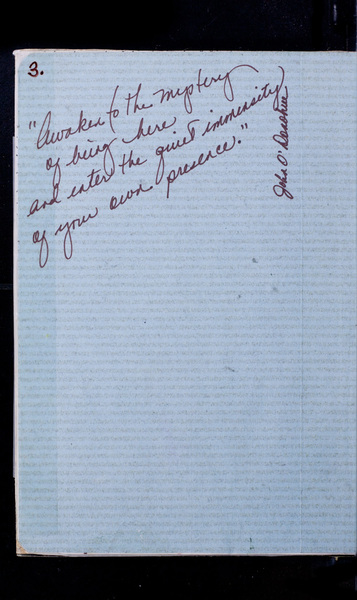 3.
"Awaken to the mystery
of being here
and enter the quiet immensity
of your own presence."
John O'Donohue